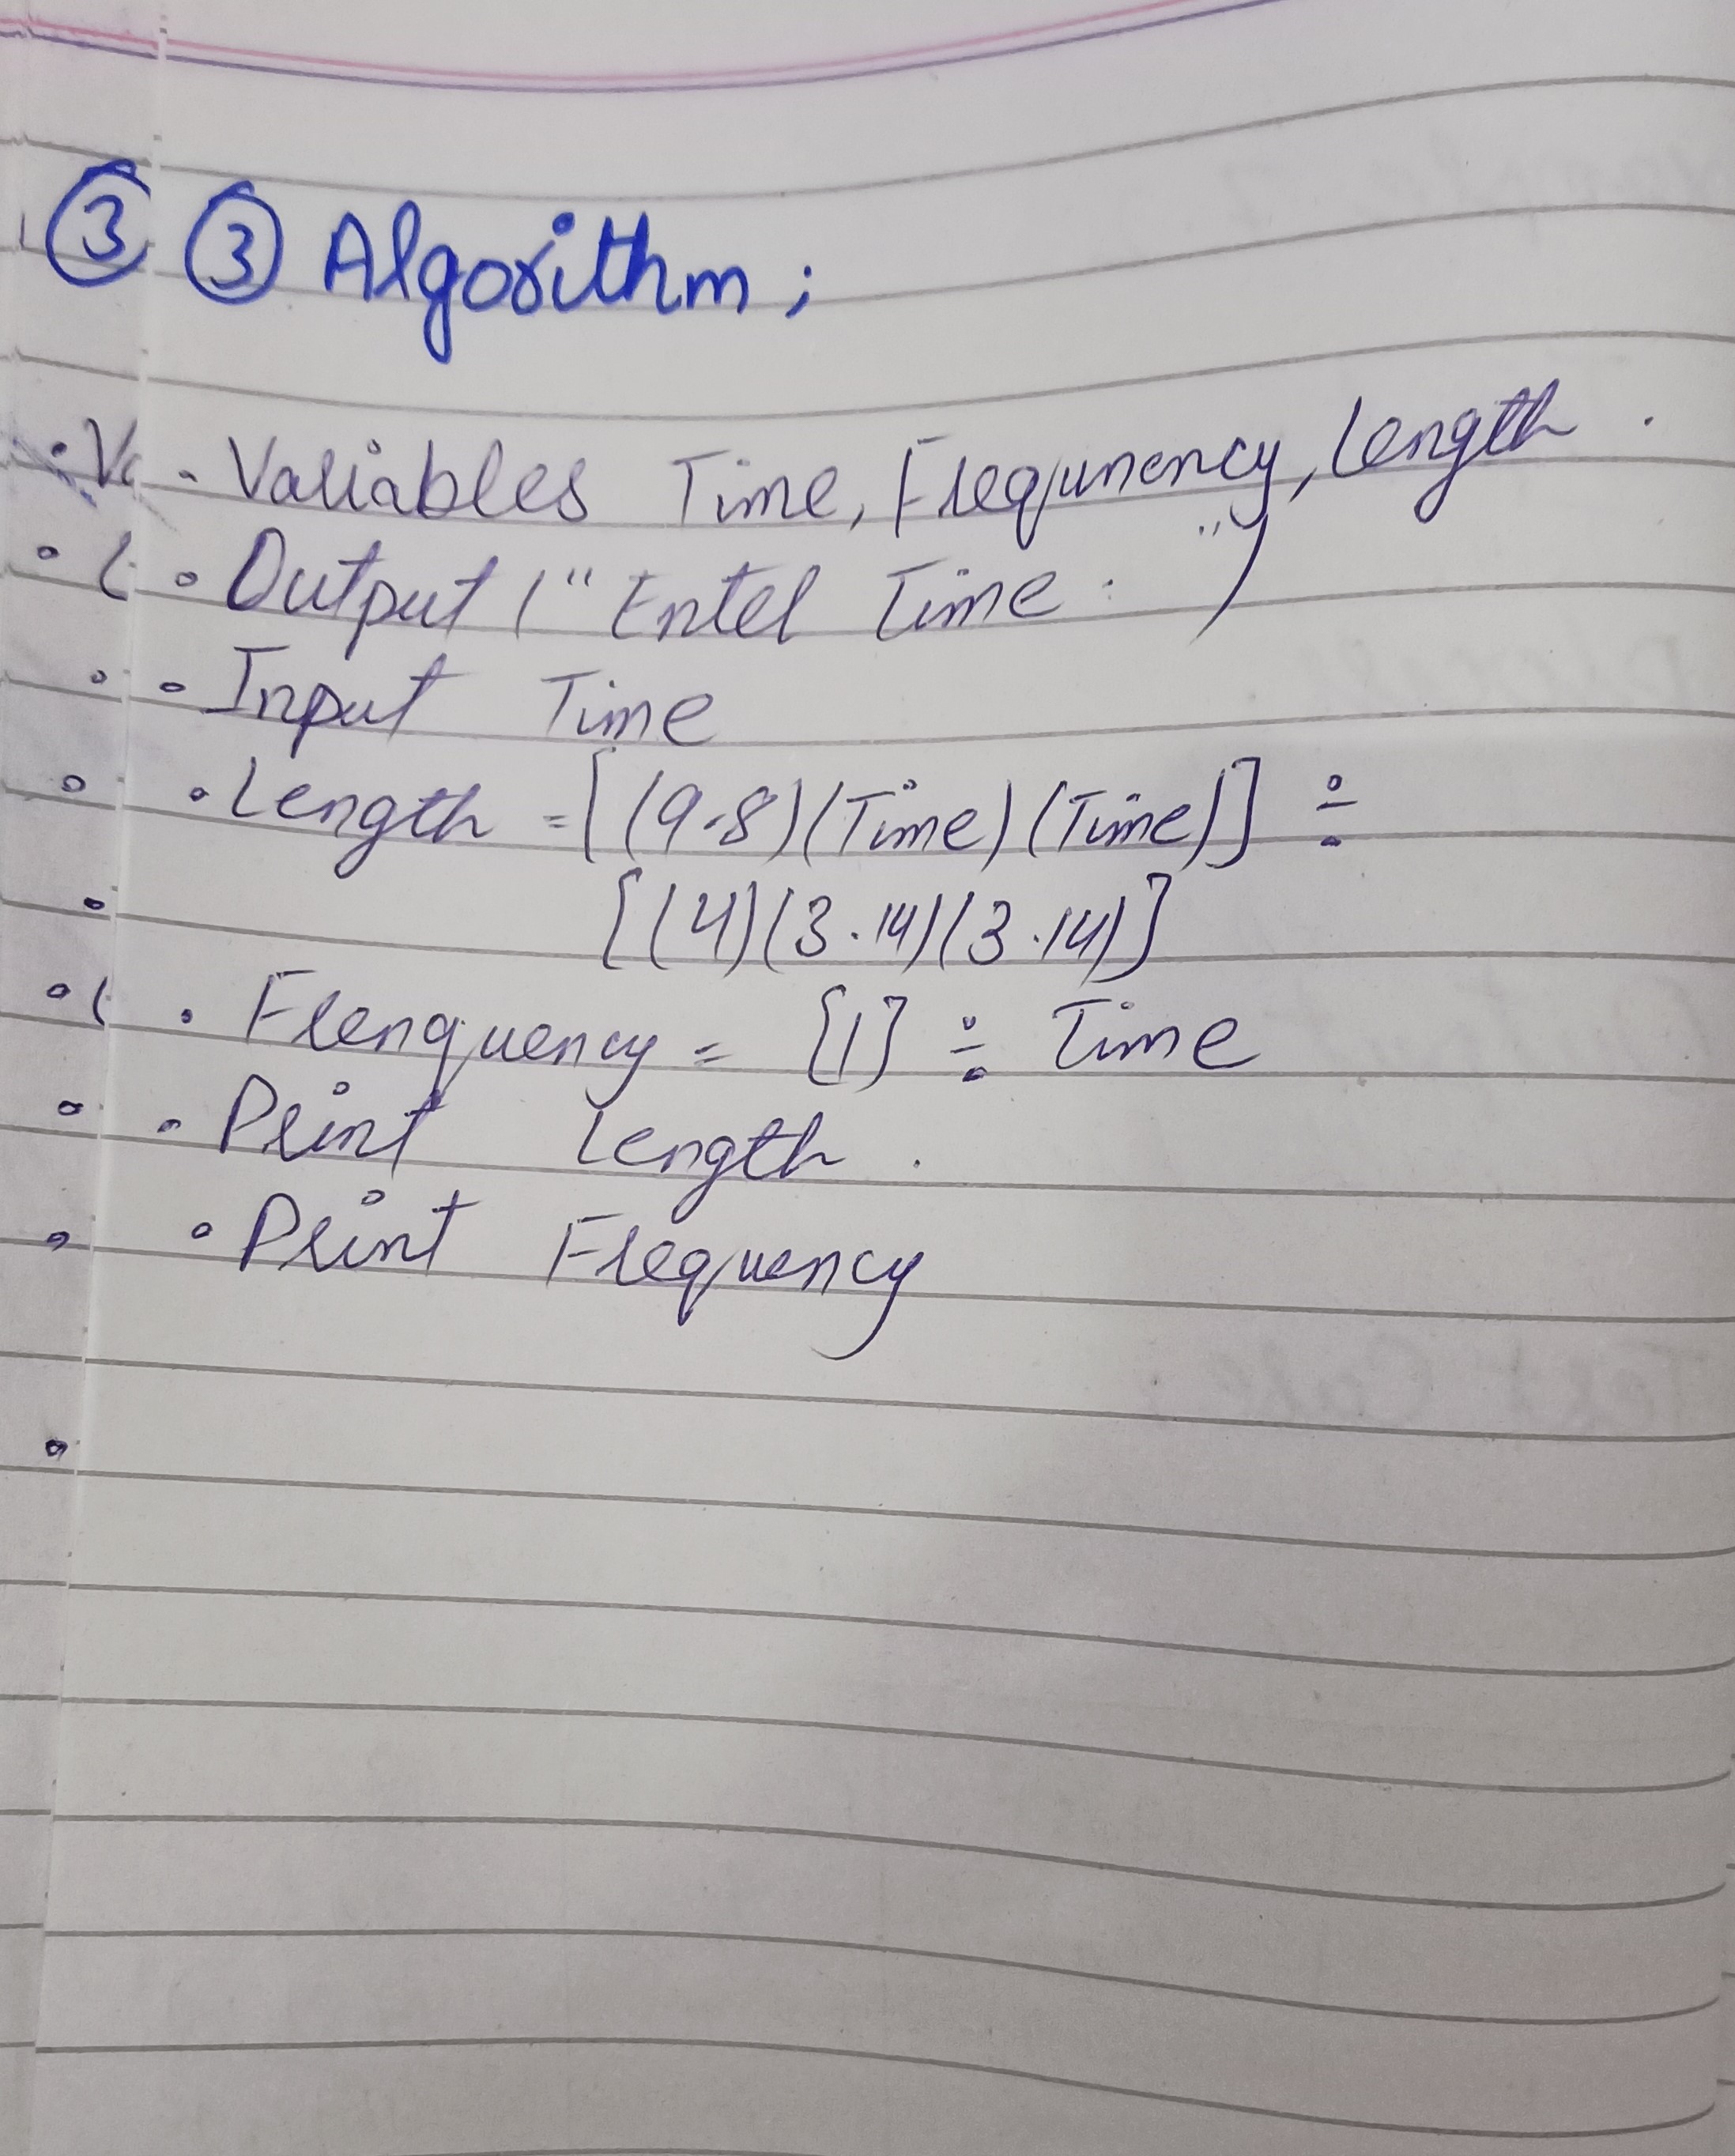 ③ ③ Algorithm ;
· V · Variables Time, Frequnency, Length .
· ( · Output (" Enter Time : ")
· · Input Time
· · Length = [ (9.8)(Time)(Time)] ÷
· [(4)(3.14)(3.14)]
· ( · Frenquency = [1] ÷ Time
· · Print Length .
· · Print Frequency
·